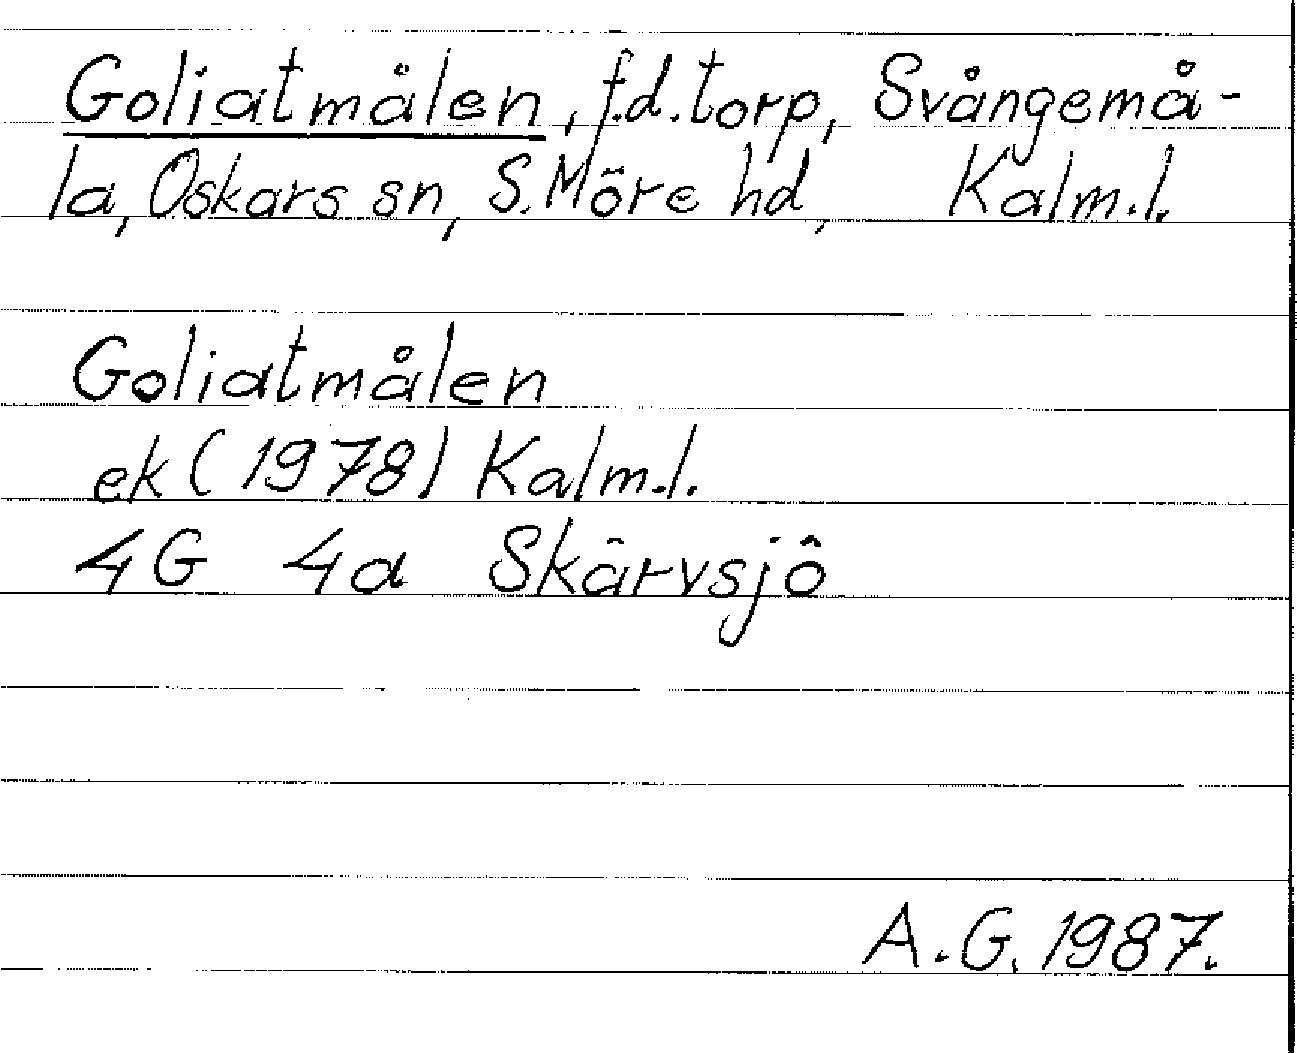 Goliatmålen, f.d. torp, Svångemå-
la, Oskars sn, S. Möre hd, Kalm.l.
Goliatmålen
ek (1978) Kalm.l.
4G 4a Skärvsjö
A.G. 1987.